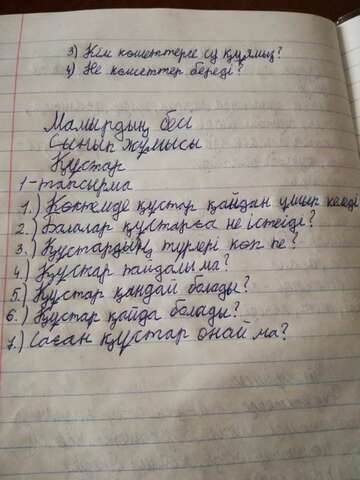 3) Кім көшеттерге су құямыз?
4) Не көшеттер береді?
Мамырдың бесі
Сынып жұмысы
Құстар
1-тапсырма
1.) Көктемде құстар қайдан ұшып келеді
2.) Балалар құстарға не істейді?
3.) Құстардың түрлері көп пе?
4.) Құстар пайдалы ма?
5.) Құстар қандай болады?
6.) Құстар қайда болады?
7.) Саған құстар онай ма?